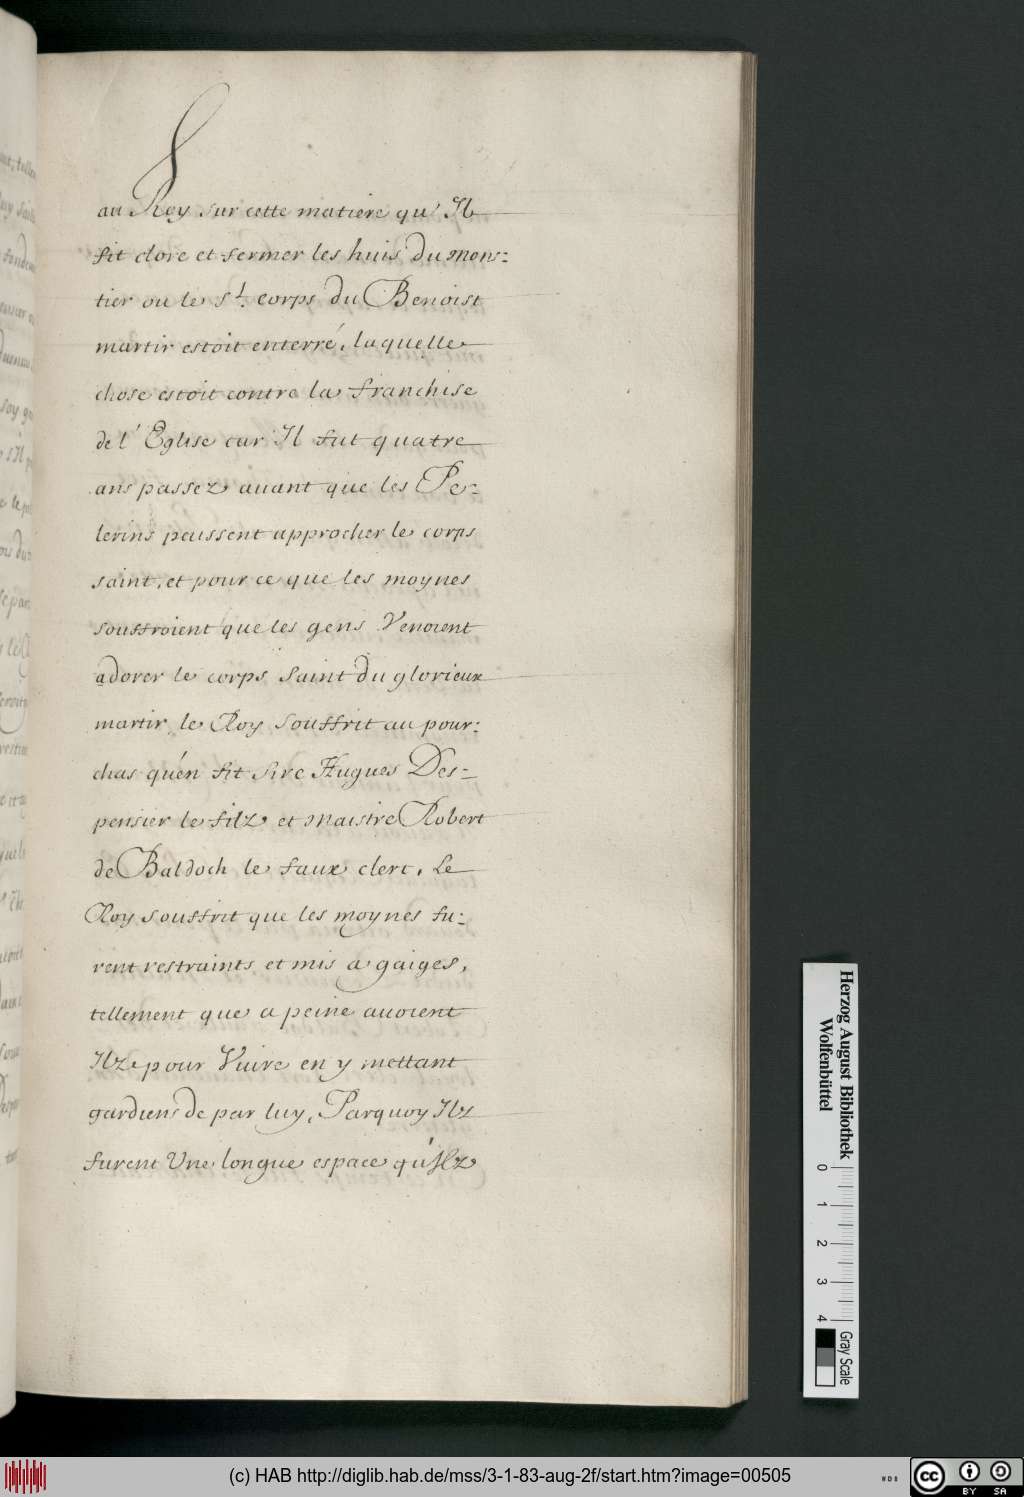 au Roy sur cette matiere qu'Il
fit clore et fermer les huis du mons-
tier ou le St. corps du Benoist
martir estoit enterré, laquelle
chose estoit contre la franchise
de l'Eglise car Il fut quatre
ans passez auant que les Pe-
lerins peussent approcher le corps
saint, et pour ce que les moynes
souffroient que les gens Venoient
adorer le corps saint du glorieux
martir le Roy souffrit au pour-
chas qu'en fit sire Hugues Des-
pensier le filz et maistre Robert
de Baldoch le faux clerc. Le
Roy souffrit que les moynes fu-
rent restraints et mis a gaiges,
tellement que a peine auoient
Ilz pour Viure en y mettant
gardiens de par luy, Parquoy Ilz
furent Une longue espace qu'Ilz
Herzog August Bibliothek
Wolfenbüttel
0 1 2 3 4
Gray Scale
(c) HAB http://diglib.hab.de/mss/3-1-83-aug-2f/start.htm?image=00505
WDB
cc BY SA